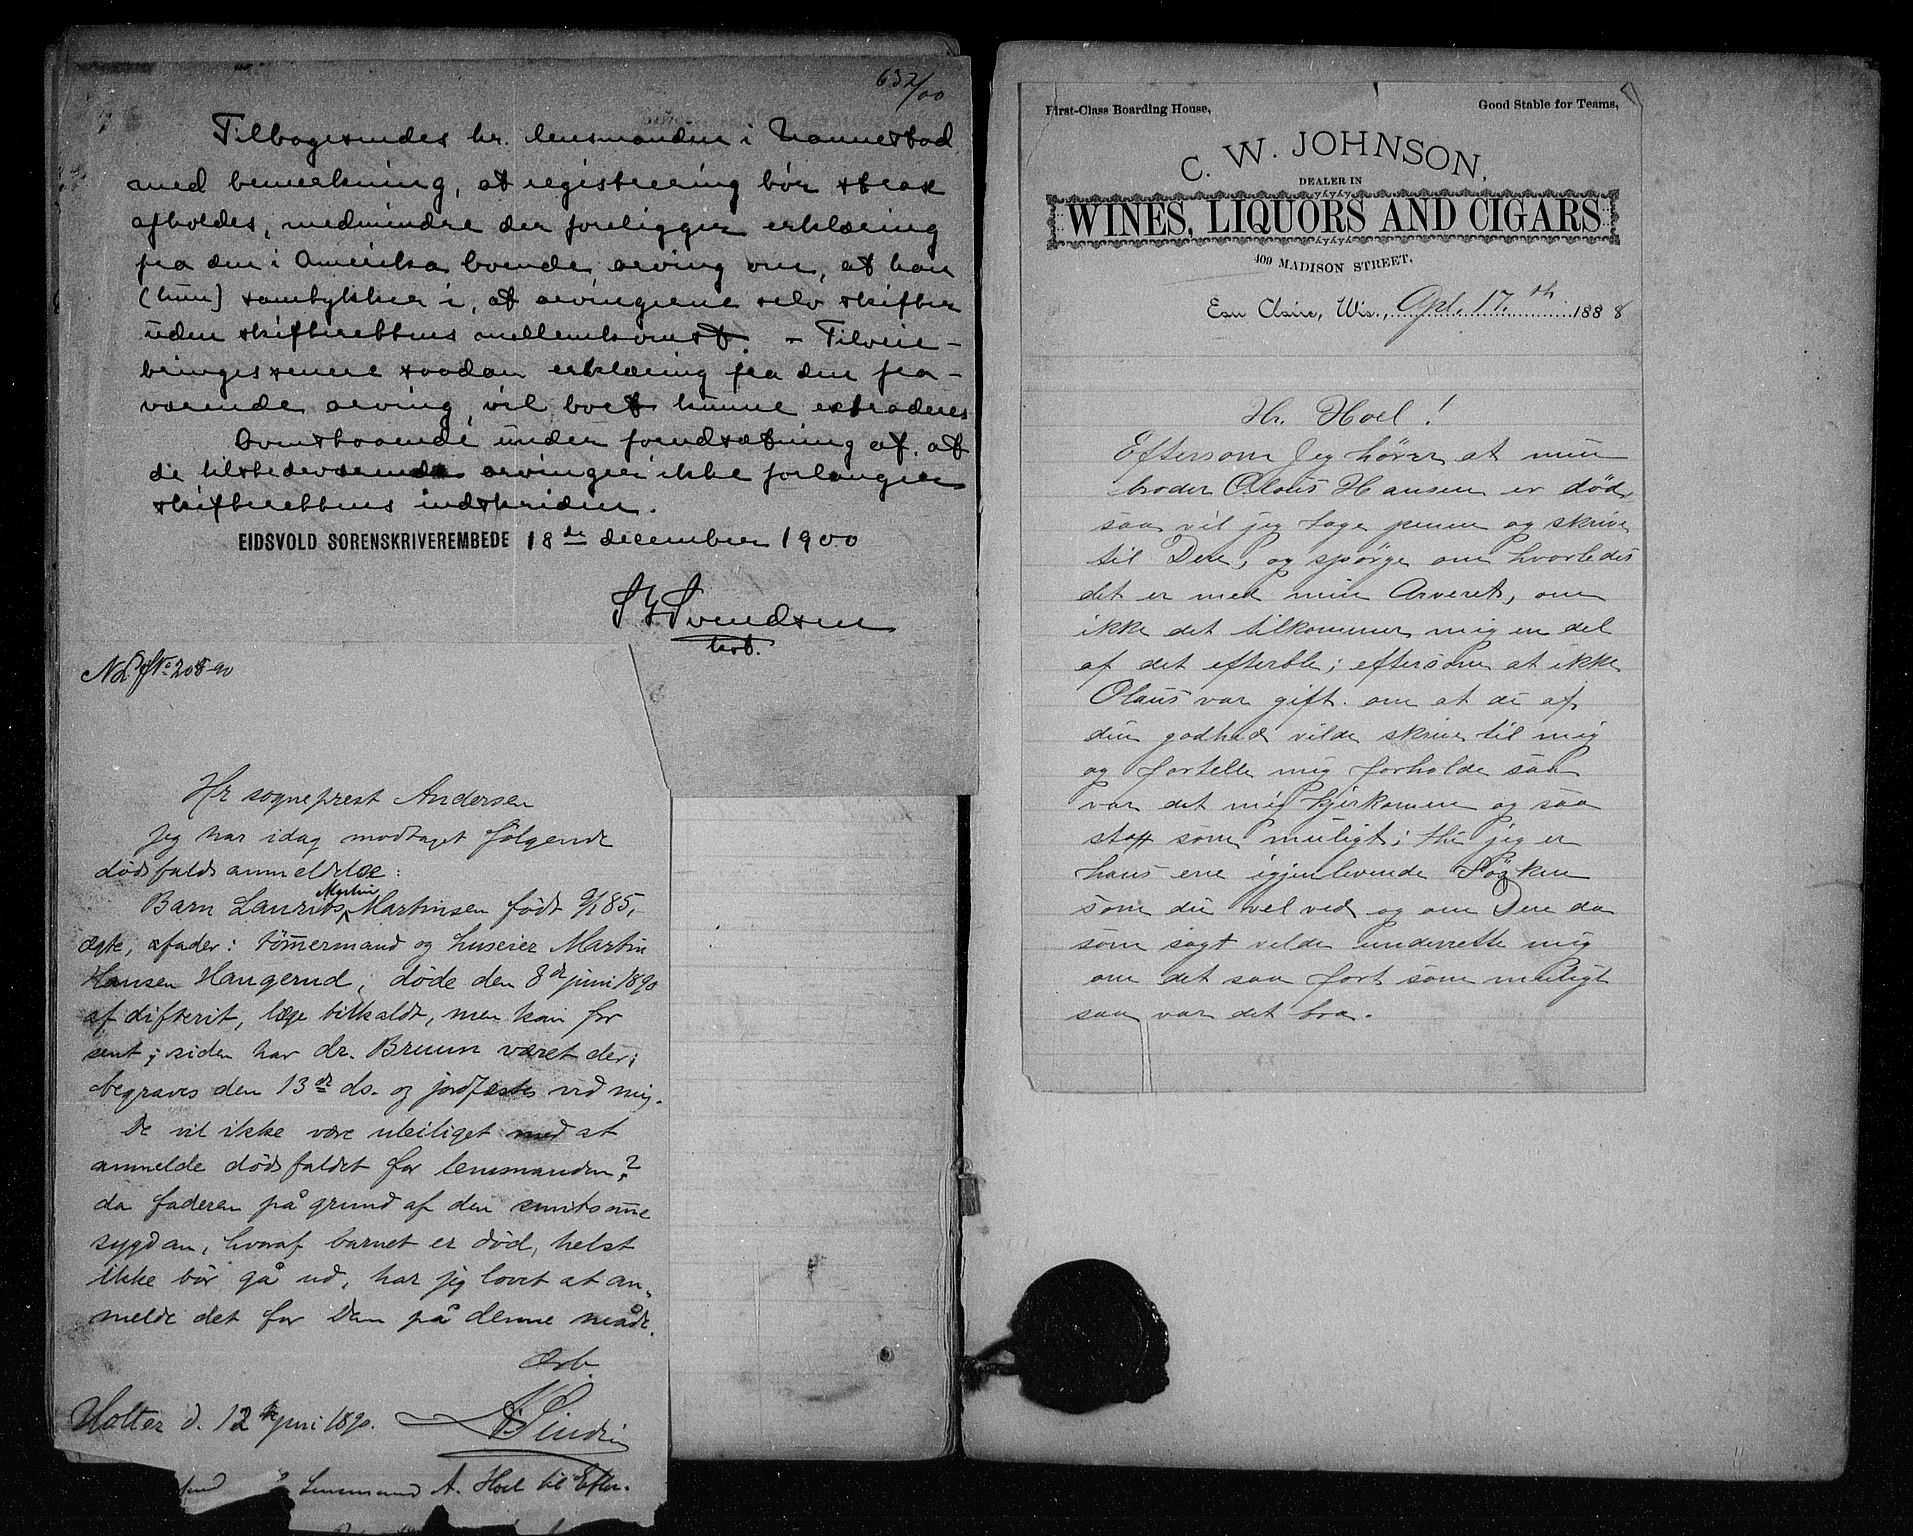 632/00
Tilbagesendes hr. lensmanden i Nannestad
med bemerkning, at registrering bør strax
afholdes, medmindre der foreligger erklæring
fra den i Amerika boende arving om, at han
(hun) samtykker i, at arvingerne selv skifter
uden skifterettens mellemkomst. – Tilveie-
bringes senere saadan erklæring fra den fra-
værende arving, vil boet kunne extraderes
Ovenstaaende under forudsætning af, at
de tilstedeværende arvinger ikke forlanger
skifterettens indskriden.
EIDSVOLD SORENSKRIVEREMBEDE 18de december 1900
Svendsen
kst.
Hr sogneprest Andersen
Jeg har idag modtaget følgende
dødsfaldsanmeldelse:
Barn Laurits Martin Martinsen født 85,
ægte, fader: tømmermand og huseier Martin
Hansen Haugerud, døde den 8de juni 1890
af difterit, læge tilkaldt, men kom for
sent; siden har dr. Bruun været der;
begraves den 13de ds. og jordfæstes ved mig.
De vil ikke være uleiliget med at
anmelde dødsfaldet for lensmanden?
da faderen på grund af den smitsomme
sygdom, hvoraf barnet er død, helst
ikke bør gå ud, har jeg lovet at an-
melde det for Dem på denne måde.
Ærb.
Holter d. 12te juni 1890.
Lensmand A. Hoel til Efter-
First-Class Boarding House,
Good Stable for Teams,
C. W. JOHNSON,
DEALER IN
WINES, LIQUORS AND CIGARS
409 MADISON STREET.
Eau Claire, Wis., Apl. 17.th 1888
Hr. Hoel!
Eftersom Jeg hører at min
broder Olaus Hansen er død,
saa vil jeg tage pennen og skrive
til Dere, og spørge om hvorledes
det er med min Arveret, om
ikke det tilkommer mig en del
af det efterble; eftersom at ikke
Olaus var gift. om at di af
din godhed vilde skrive til mig
og fortelle mig forholde saa
var det mig kjerkomen og saa
start som muligt; thi jeg er
hans ene igjenlevende Søsken
som du vel ved og om Dere da
som sagt vilde underrette mig
om det saa fort som muligt
saa var det bra.